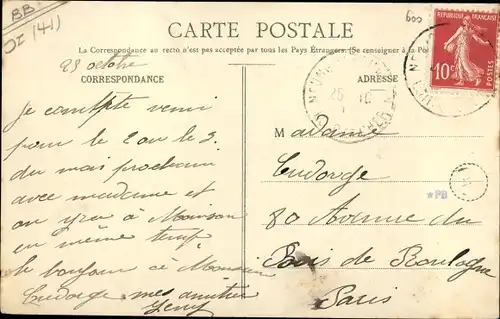 BB
OI (41)
600
CARTE POSTALE
La Correspondance au recto n'est pas acceptée par tous les Pays Étrangers. (Se renseigner à la Po
RÉPUBLIQUE FRANÇAISE
10c
POSTES
CORRESPONDANCE
ADRESSE
25 octobre
Je compte venir
pour le 2 ou le 3
du mois prochain
avec madame et
on ira à
en même temps
le bonjour à Monsieur
mes amitiés
Madame
80 Avenue du
Bois de Boulogne
Paris
*PB